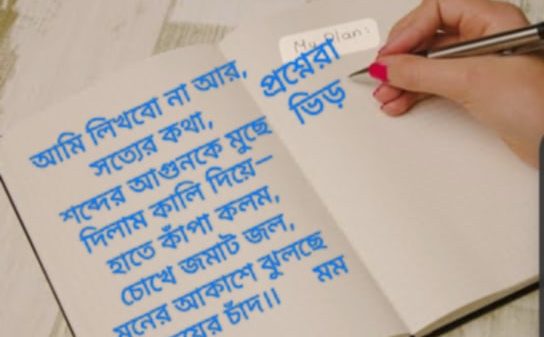 My Plan:
প্রশ্নেরা
ভিড়
আমি লিখবো না আর,
সত্যের কথা,
শব্দের আগুনকে মুছে
দিলাম কালি দিয়ে–
হাতে কাঁপা কলম,
চোখে জমাট জল,
মনের আকাশে ঝুলছে
চাঁদ।।
মম